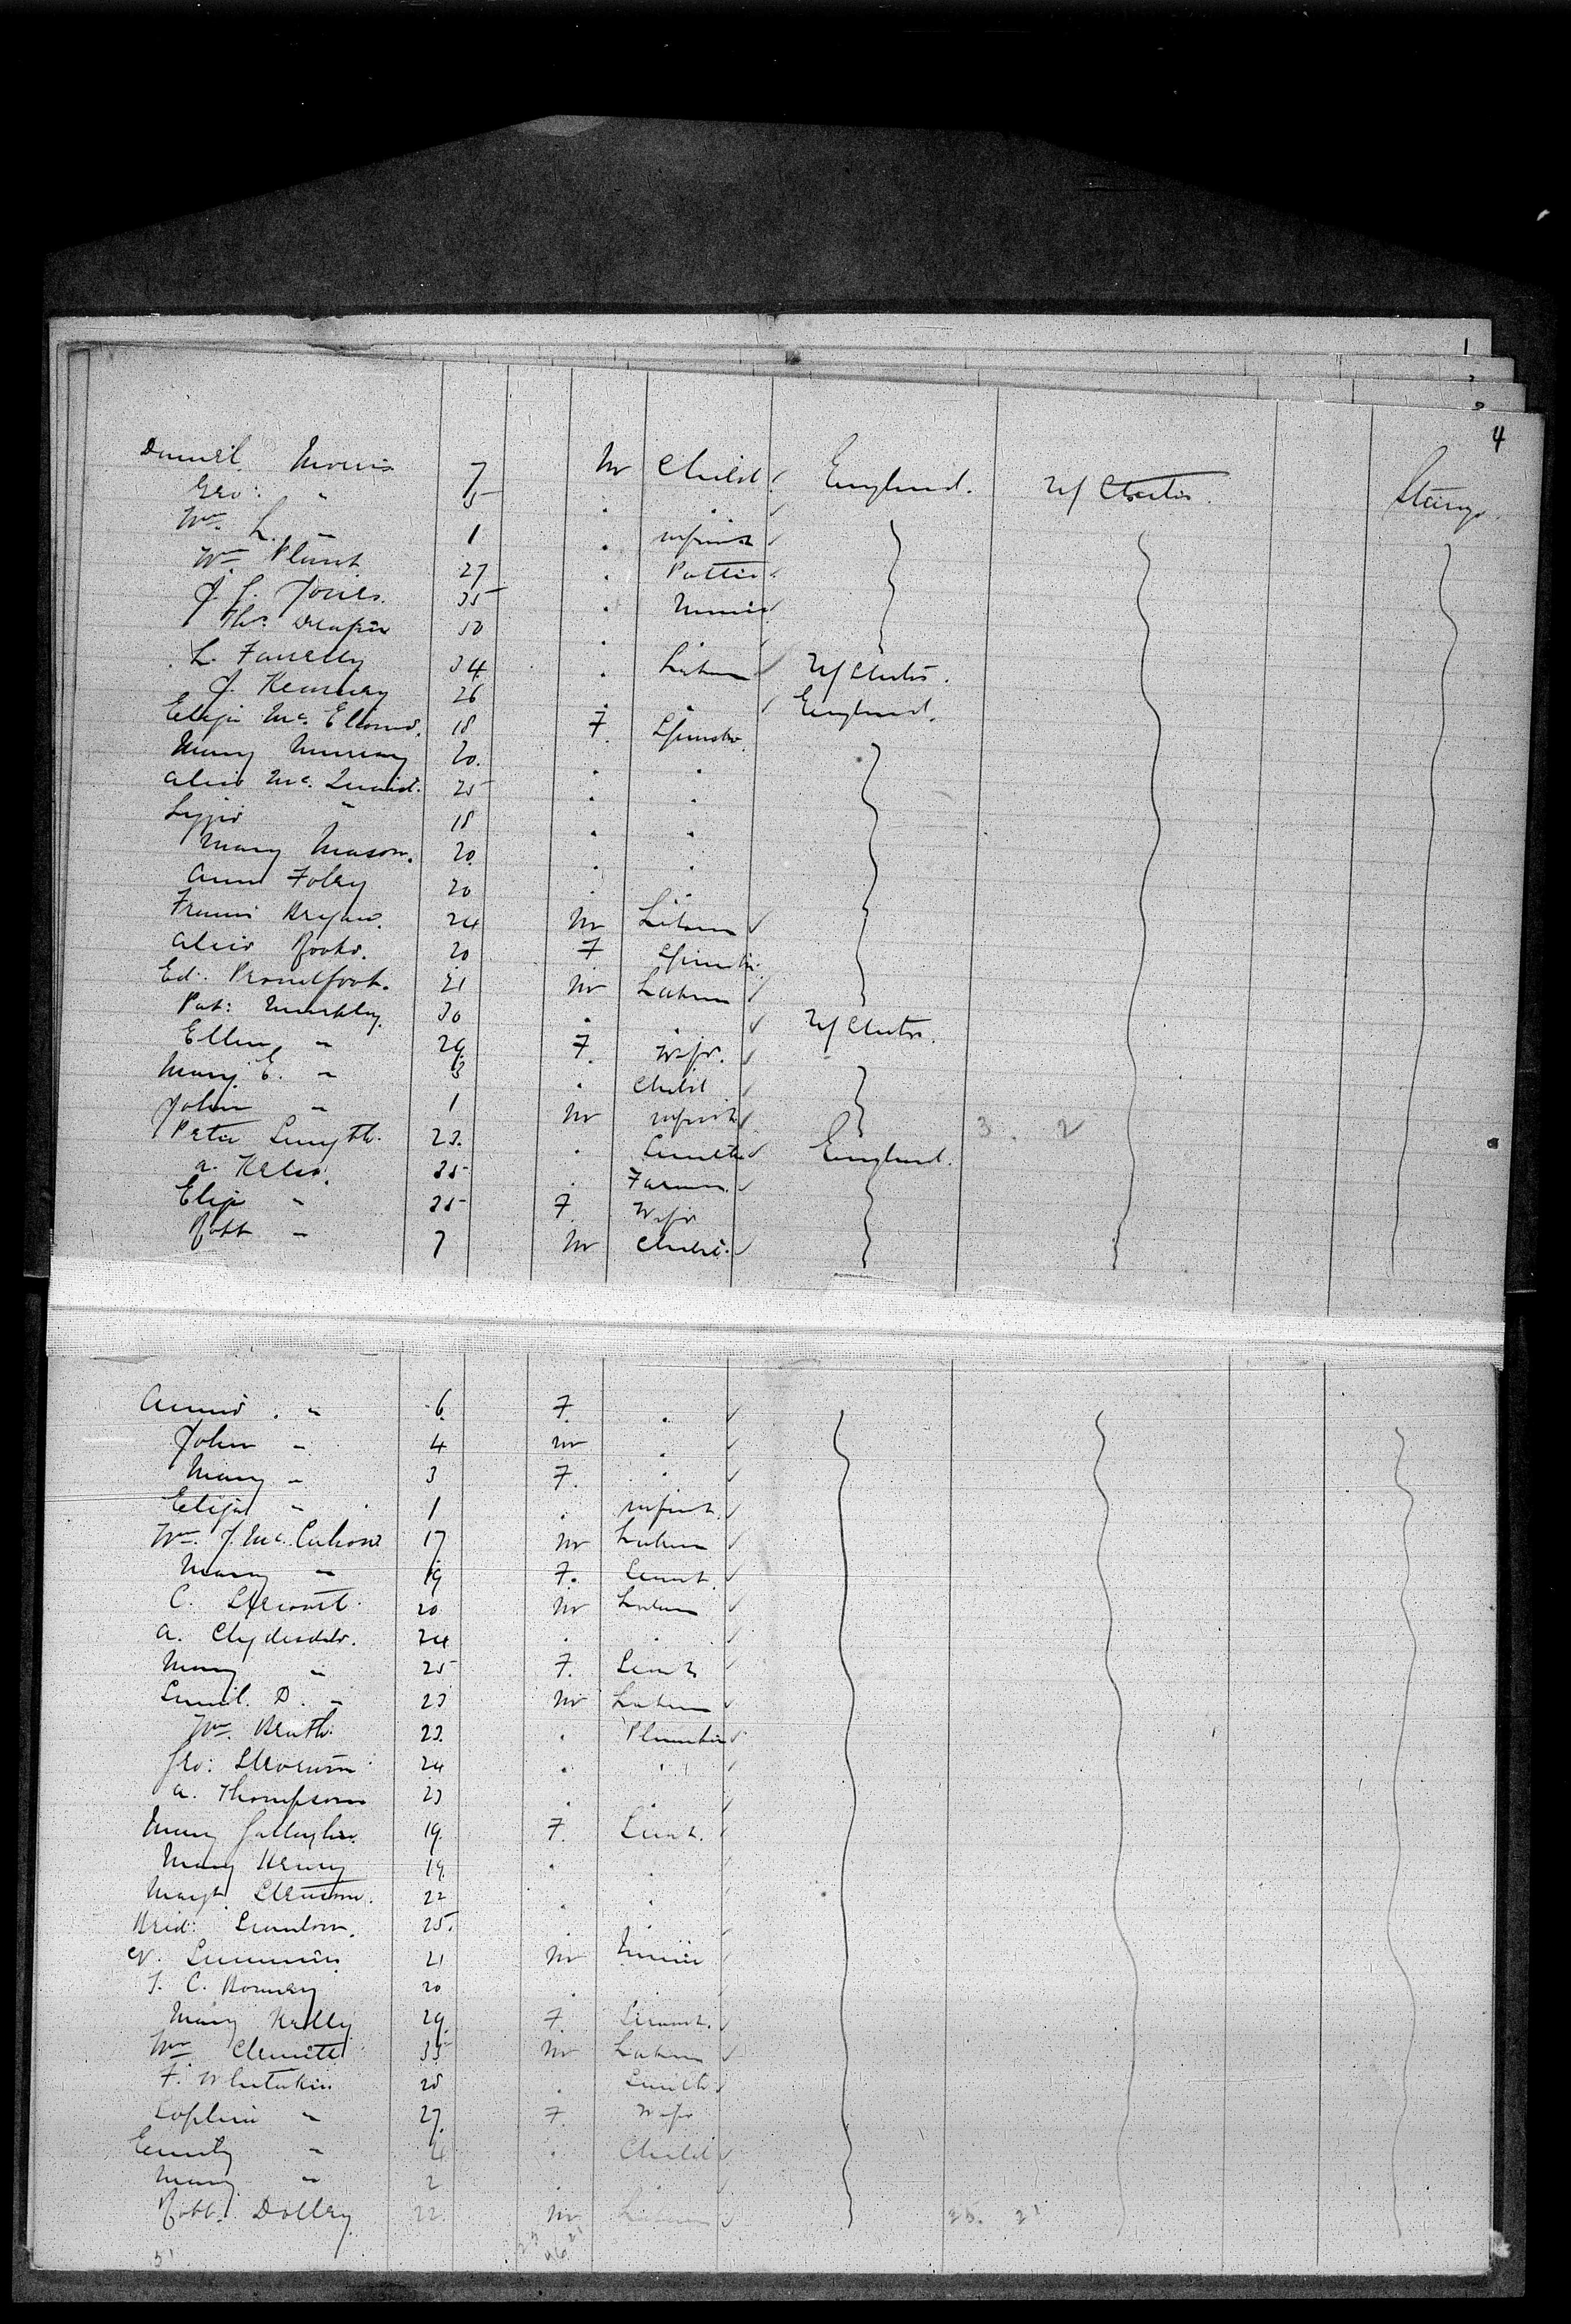 1
2
3
4
Daniel Morris 7 M Child England. U/States. Steerage
Geo: " 5 . .
Wm. L. " 1 . infant
Wm. Plant 27 . Potter
J. S. Jones. 35 . Miner
Thos. Draper 50 . .
L. Farrelly 34 . Labourer U/States.
J. Kearney 26 . . England.
Eliza Mc. 18 F. Spinster
Mary Murray 20. . .
Alice Mc. Quaid. 25 . .
Lizzie " 18 . .
Mary Mason. 20. . .
Anne Foley 20 . .
Francis Bryan. 24 M Labourer
Alice 20 F Spinster
Ed: Proudfoot. 21 M Labourer
Pat: 30 . . U/States.
Ellen " 29. F. Wife.
Mary E. " 3 . Child
John " 1 M infant 3. 2
Peter Smyth. 23. . Smith England.
A. Kelso. 35 . Farmer.
Eliza " 35 F. Wife
Robt " 7 M Child.
Annie. " 6. F. .
John " 4 M .
Mary " 3 F. .
Eliza " 1 . infant.
Wm. J. Mc. 17 M Labourer
Mary " 19 F. Servt.
C. Stewart 20 M Labourer
A. Clydesdale. 24 . .
Mary " 25 F. Servt
Saml. D. " 23 M Labourer
Wm. 23. . Plumber
Geo: 24 . "
A. Thompson 23 . .
Mary Gallagher. 19. F. Servt.
Mary Henry 19. . .
Margt. 22 . .
Brid: Scanlon. 25. .
21 M Miner
20 .
Mary Kelly 29. F. Servant.
Wm 35 M Labourer
F. Whitaker 28 . Smith
Sophia " 27. F. Wife
Emily " 4 . Child
Mary " 2 . .
Robt. Dolley 22. M Labourer 25. 21
51 25 21
46